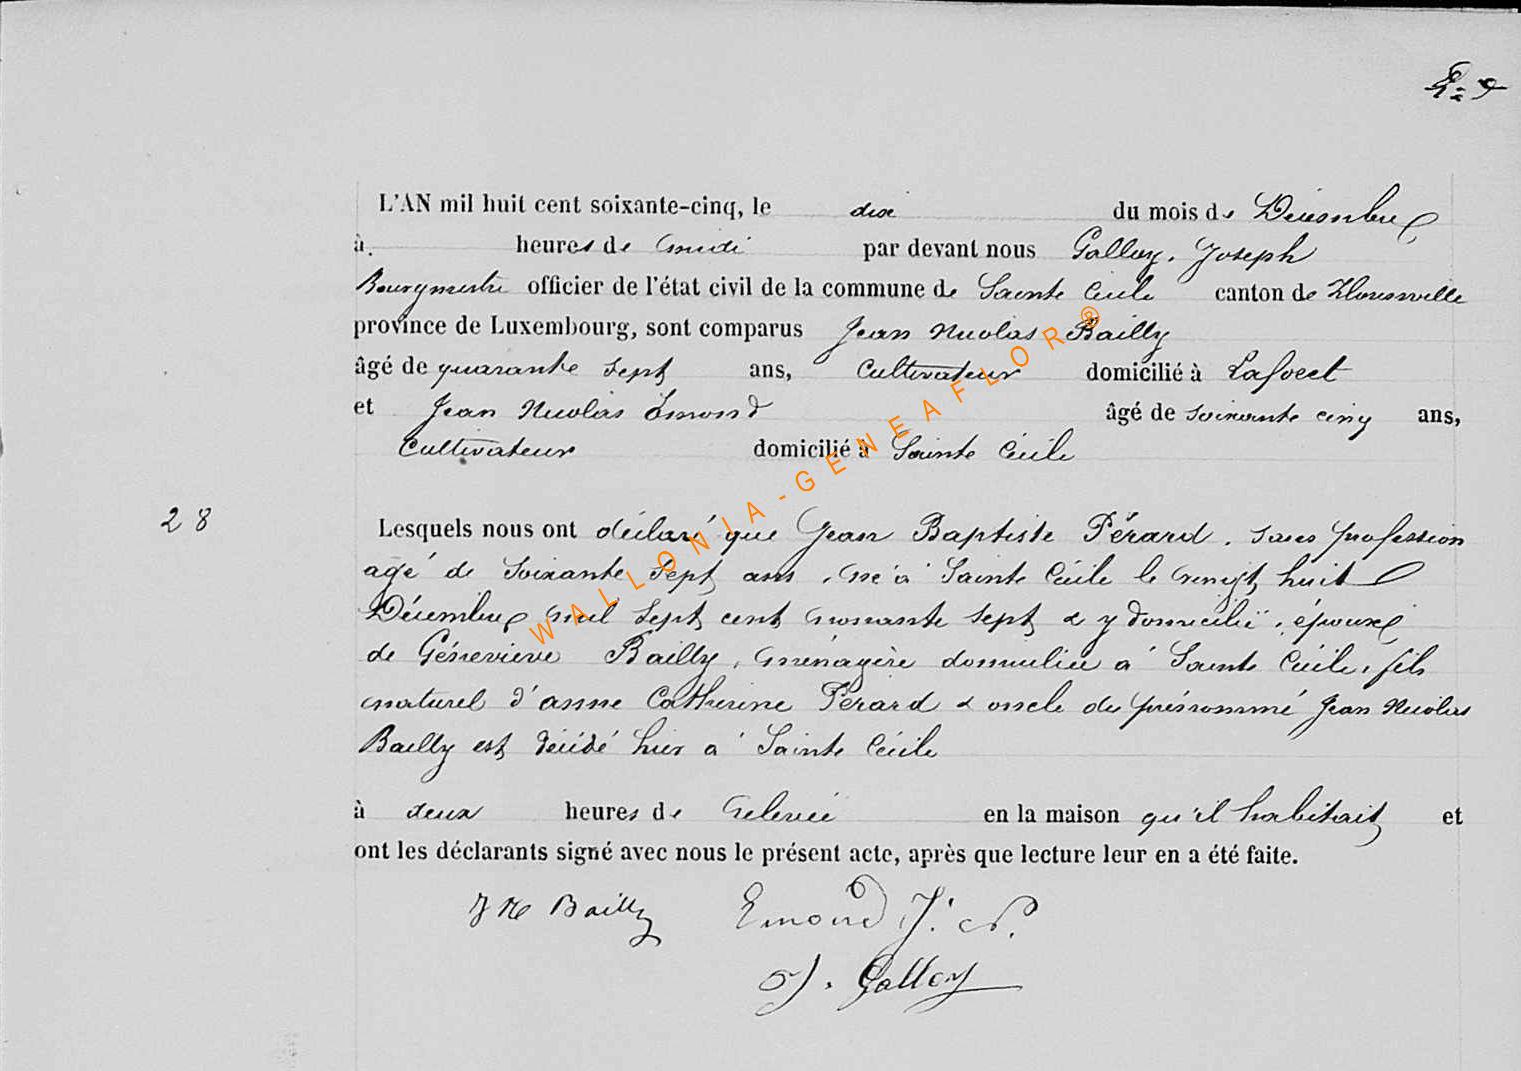 L'AN mil huit cent soixante-cinq, le dix du mois de Décembre
à heures de midi par devant nous Galloy, Joseph
Bourgmestre officier de l'état civil de la commune de Sainte Cécile canton de Florenville
province de Luxembourg, sont comparus Jean Nicolas Bailly
âgé de quarante sept ans, Cultivateur domicilié à Lafoeet
et Jean Nicolas Emond âgé de soixante cinq ans,
Cultivateur domicilié à Sainte Cécile
28
Lesquels nous ont déclaré que Jean Baptiste Pérard, sans profession
agé de soixante sept ans, né à Sainte Cécile le vingt huit
Décembre mil sept cent nonante sept & y domicilié, époux
de Génevieve Bailly, ménagère domiciliée à Sainte Cécile, fils
naturel d'anne Catherine Pérard & oncle du prénommé Jean Nicolas
Bailly est décédé hier à Sainte Cécile
à deux heures de relevée en la maison qu'il habitait et
ont les déclarants signé avec nous le présent acte, après que lecture leur en a été faite.
J N Bailly Emond J. N.
J. Galloy
WALLONIA-GENEAFLOR®